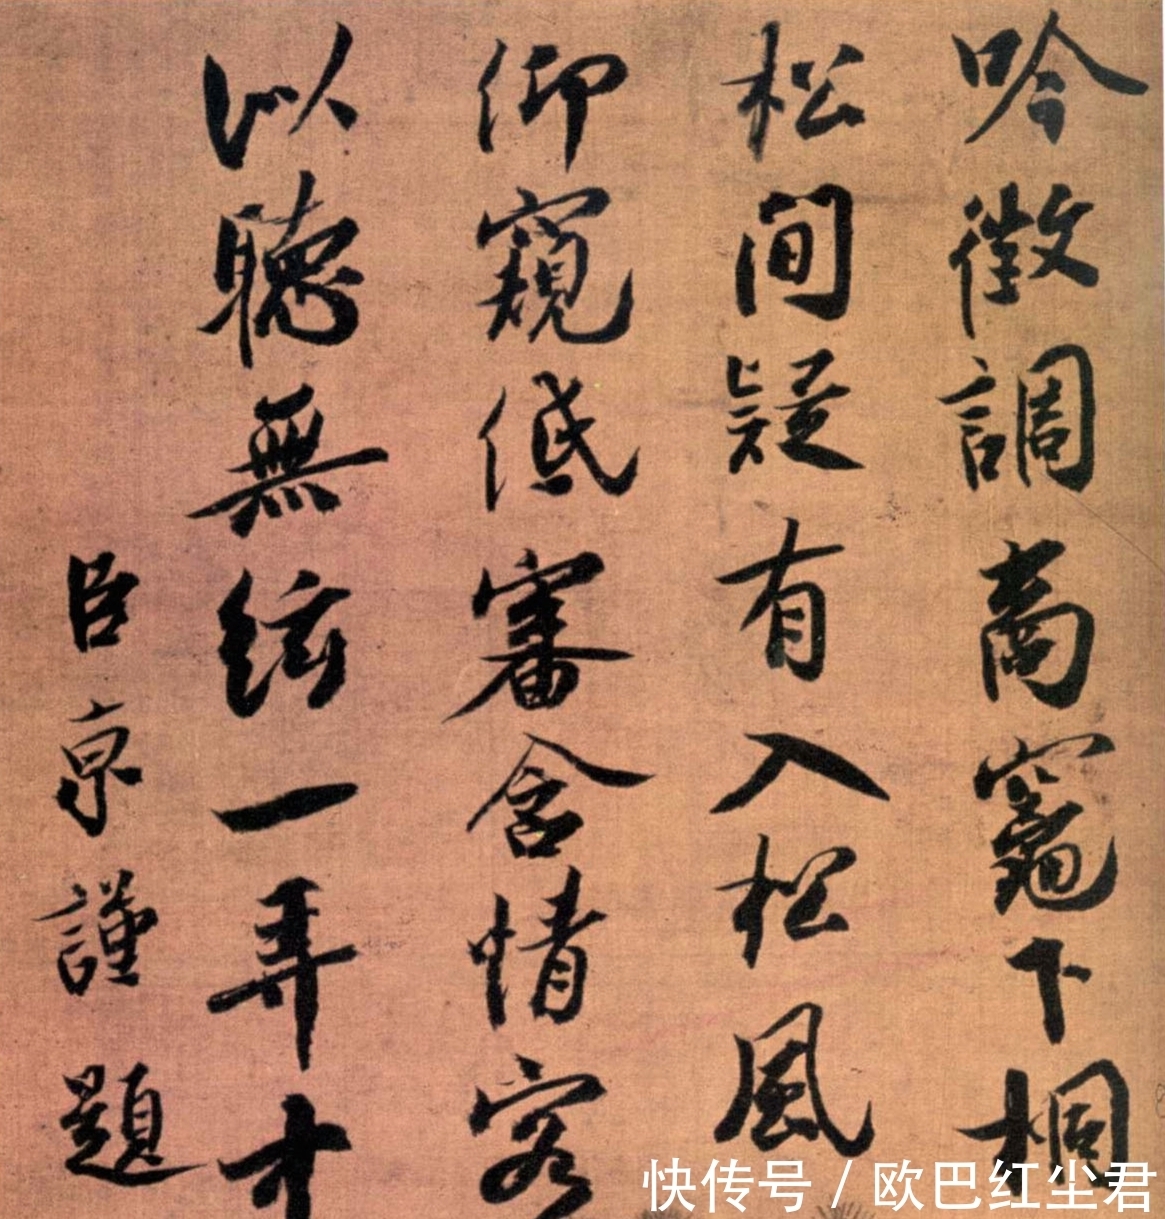 吟徵調商竈下桐
松間疑有入松風
仰窺低審含情客
似聽無絃一弄中
臣京謹題
快传号 / 欧巴红尘君